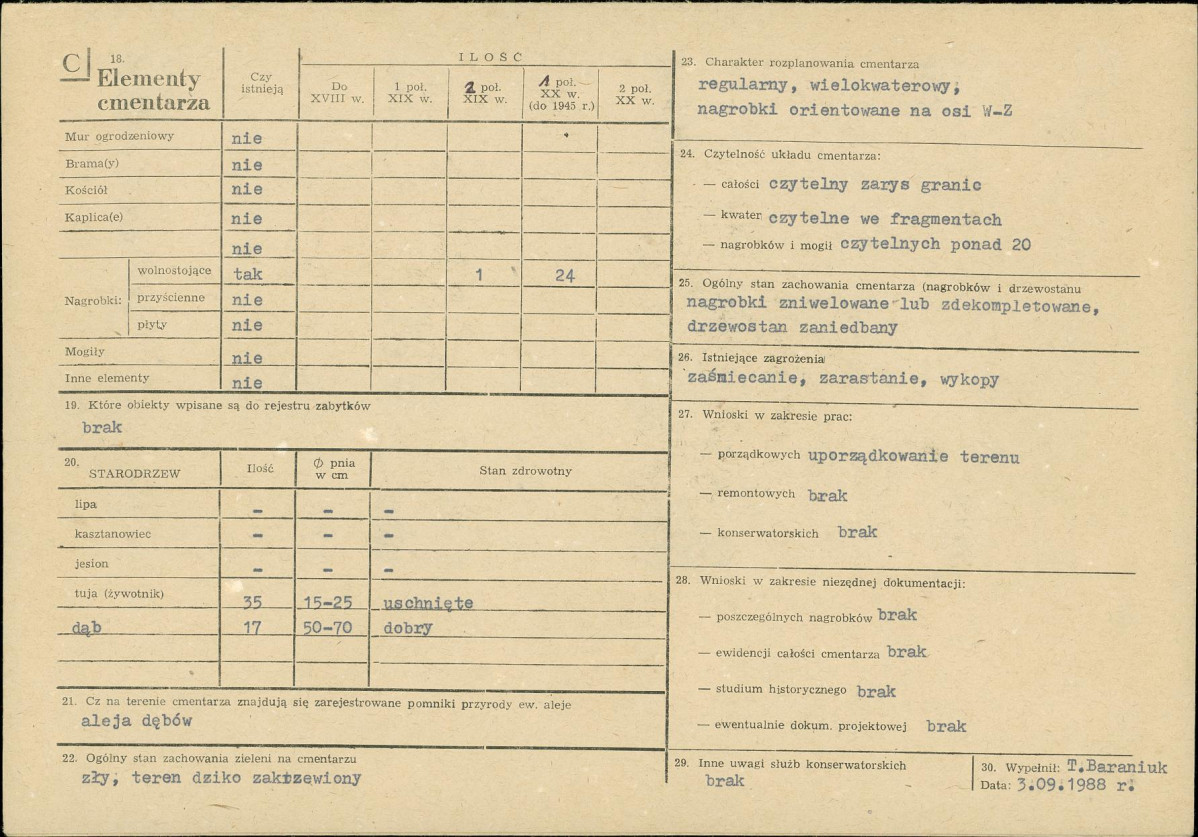 C 18.
Elementy
cmentarza
Czy
istnieją
ILOŚĆ
Do
XVIII w.
1 poł.
XIX w.
2 poł.
XIX w.
1 poł.
XX w.
(do 1945 r.)
2 poł.
XX w.
Mur ogrodzeniowy nie
Brama(y) nie
Kościół nie
Kaplica(e) nie
nie
Nagrobki:
wolnostojące tak 1 24
przyścienne nie
płyty nie
Mogiły nie
Inne elementy nie
19. Które obiekty wpisane są do rejestru zabytków
brak
20.
STARODRZEW
Ilość
Ø pnia
w cm
Stan zdrowotny
lipa - - -
kasztanowiec - - -
jesion - - -
tuja (żywotnik) 35 15-25 uschnięte
dąb 17 50-70 dobry
21. Cz na terenie cmentarza znajdują się zarejestrowane pomniki przyrody ew. aleje
aleja dębów
22. Ogólny stan zachowania zieleni na cmentarzu
zły, teren dziko zakrzewiony
23. Charakter rozplanowania cmentarza
regularny, wielokwaterowy,
nagrobki orientowane na osi W-Z
24. Czytelność układu cmentarza:
— całości czytelny zarys granic
— kwater czytelne we fragmentach
— nagrobków i mogił czytelnych ponad 20
25. Ogólny stan zachowania cmentarza (nagrobków i drzewostanu
nagrobki zniwelowane lub zdekompletowane,
drzewostan zaniedbany
26. Istniejące zagrożenia
zaśmiecanie, zarastanie, wykopy
27. Wnioski w zakresie prac:
— porządkowych uporządkowanie terenu
— remontowych brak
— konserwatorskich brak
28. Wnioski w zakresie niezędnej dokumentacji:
— poszczególnych nagrobków brak
— ewidencji całości cmentarza brak
— studium historycznego brak
— ewentualnie dokum. projektowej brak
29. Inne uwagi służb konserwatorskich
brak
30. Wypełnił: T.Baraniuk
Data: 3.09.1988 r.